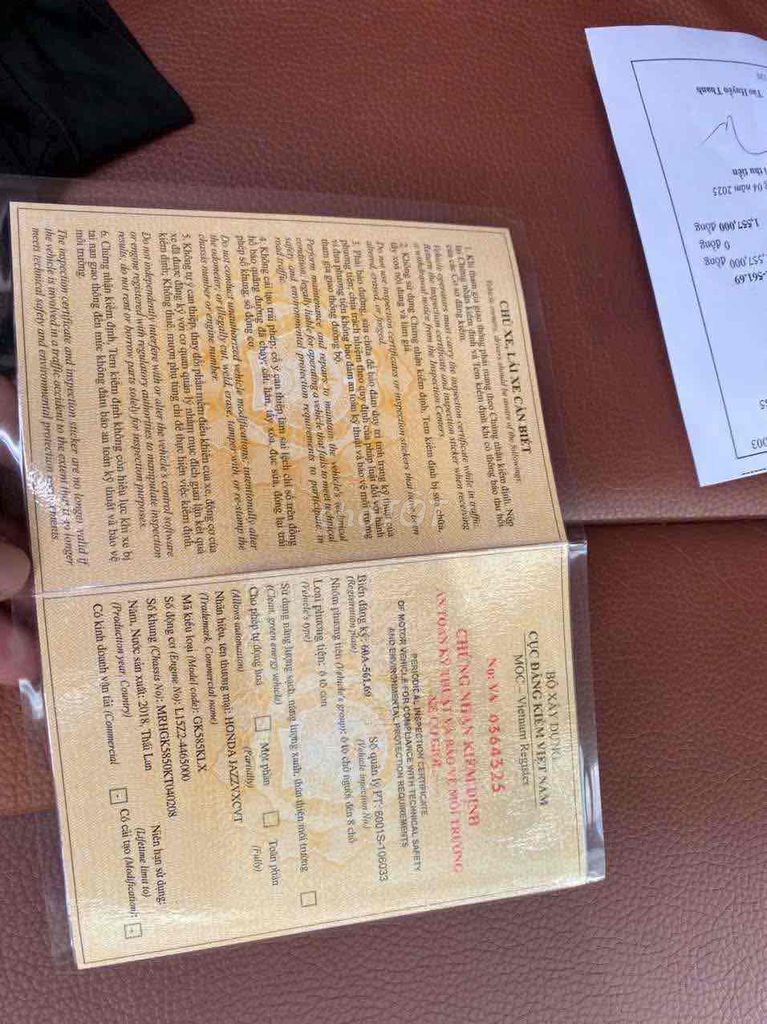 CHỦ XE, LÁI XE CẦN BIẾT
Vehicle owners, drivers should be aware of the following:
1. Khi tham gia giao thông phải mang theo Chứng nhận kiểm định. Nộp
lại Chứng nhận kiểm định và Tem kiểm định khi có thông báo thu hồi
của các Cơ sở đăng kiểm.
Vehicle operators must carry the inspection certificate while in traffic.
Return the inspection certificate and inspection sticker when receiving
a withdrawal notice from the Inspection Centers.
2. Không sử dụng Chứng nhận kiểm định, Tem kiểm định bị sửa chữa,
tẩy xoá nội dung và làm giả.
Do not use inspection certificates or inspection stickers that have been
altered, erased, or forged.
3. Phải bảo dưỡng, sửa chữa để bảo đảm duy trì tình trạng kỹ thuật của
phương tiện; chịu trách nhiệm theo quy định của pháp luật đối với hành
vi đưa phương tiện không bảo đảm an toàn kỹ thuật và bảo vệ môi trường
tham gia giao thông đường bộ.
Perform maintenance and repairs to maintain the vehicle's technical
condition; legally liable for operating a vehicle that fails to meet technical
safety and environmental protection requirements to participate in
road traffic.
4. Không cải tạo trái phép; cố ý can thiệp làm sai lệch chỉ số trên đồng
hồ báo quãng đường đã chạy; cắt, hàn, tẩy xóa, đục sửa, đóng lại trái
phép số khung, số động cơ.
Do not conduct unauthorized vehicle modifications; intentionally alter
the odometer, or illegally cut, weld, erase, tamper with, or re-stamp the
chassis number or engine number.
5. Không tự ý can thiệp, thay đổi phần mềm điều khiển của xe, động cơ của
xe đã được đăng ký với cơ quan quản lý nhằm mục đích gian lận kết quả
kiểm định; Không thuê, mượn phụ tùng chỉ để thực hiện việc kiểm định.
Do not independently interfere with or alter the vehicle's control software
or engine registered with regulatory authorities to manipulate inspection
results, do not rent or borrow parts solely for inspection purposes.
6. Chứng nhận kiểm định, Tem kiểm định không còn hiệu lực khi xe bị
tai nạn giao thông đến mức không đảm bảo an toàn kỹ thuật và bảo vệ
môi trường.
The inspection certificate and inspection sticker are no longer valid if
the vehicle is involved in a traffic accident to the extent that it no longer
meets technical safety and environmental protection requirements
BỘ XÂY DỰNG
CỤC ĐĂNG KIỂM VIỆT NAM
MOC – Vietnam Register
No: VA 0364325
CHỨNG NHẬN KIỂM ĐỊNH
AN TOÀN KỸ THUẬT VÀ BẢO VỆ MÔI TRƯỜNG
XE CƠ GIỚI
PERIODICAL INSPECTION CERTIFICATE
OF MOTOR VEHICLE FOR COMPLIANCE WITH TECHNICAL SAFETY
AND ENVIRONMENTAL PROTECTION REQUIREMENTS
Biển đăng ký: 60A-561.69 Số quản lý PT: 6001S-106033
(Registration plate) (Vehicle inspection No)
Nhóm phương tiện (Vehicle's group): ô tô chở người đến 8 chỗ
Loại phương tiện: ô tô con
(Vehicle's type)
Sử dụng năng lượng sạch, năng lượng xanh, thân thiện môi trường
(Clean, green energy vehicle)
Cho phép tự động hoá Một phần Toàn phần
(Allows automation) (Partially) (Fully)
Nhãn hiệu, tên thương mại: HONDA JAZZ VX CVT
(Trademark, Commercial name)
Mã kiểu loại (Model code): GK585KLX
Số động cơ (Engine No): L15Z2-4465000
Số khung (Chassis No): MRHGK5850KT040208
Năm, Nước sản xuất: 2018, Thái Lan Niên hạn sử dụng:
(Production year, Country) (Lifetime limit to)
Có kinh doanh vận tải (Commercial - Có cải tạo (Modification): -
Tào Huyền Thanh
i thu tiền
g 04 năm 2025
1,557,000 đồng
0 đồng
,557,000 đồng
-561.69
003
chợTỐT